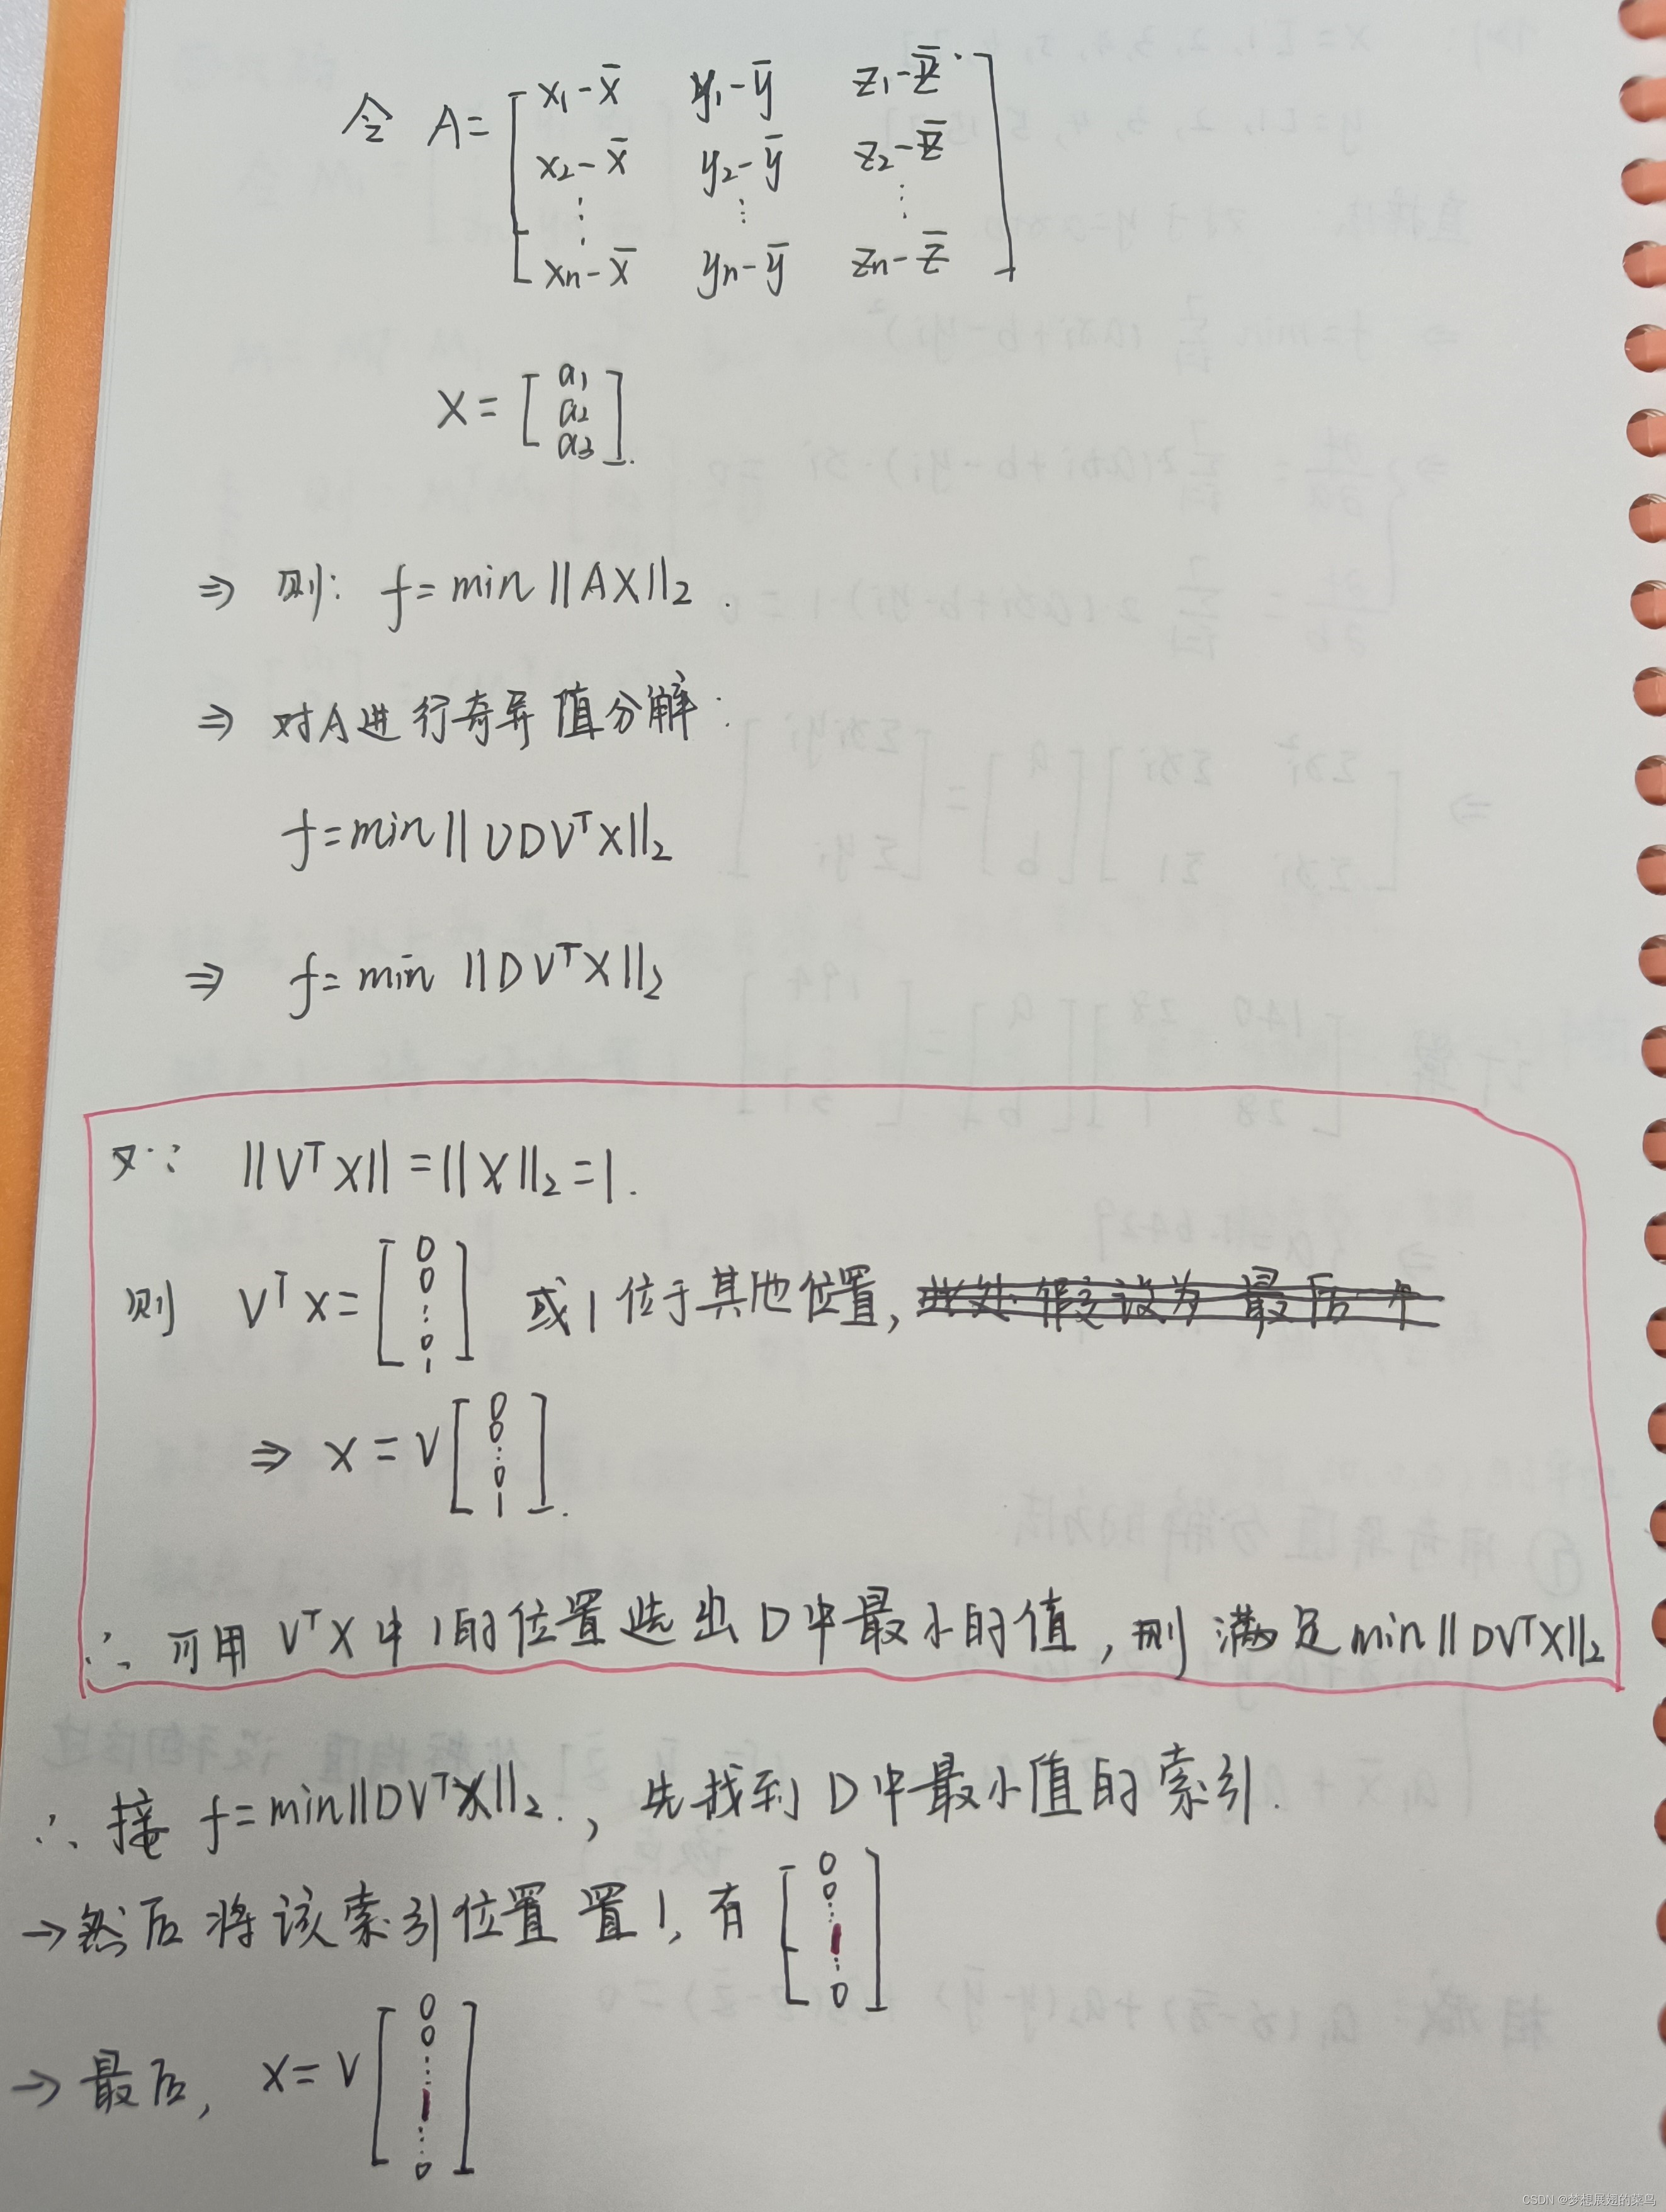 令 A= [ x1-x̄ y1-ȳ z1-z̄
x2-x̄ y2-ȳ z2-z̄
⋮ ⋮ ⋮
xn-x̄ yn-ȳ zn-z̄ ]
X= [ a1
a2
a3 ].
⇒ 则: f=min ||AX||₂.
⇒ 对A进行奇异值分解:
f=min || UDVᵀX||₂
⇒ f=min ||DVᵀX||₂
又∵ ||VᵀX||=||X||₂=1.
则 VᵀX= [ 0 0 ⋮ 0 1 ] 或1位于其他位置, 此处假设为最后个
⇒ X=V [ 0 0 ⋮ 0 1 ].
∴ 可用 VᵀX中1的位置选出D中最小的值,则满足min||DVᵀX||₂
∴ 接 f=min||DVᵀX||₂., 先找到D中最小值的索引.
→然后将该索引位置置1,有 [ 0 0 ⋮ 1 ⋮ 0 ]
→最后, X=V [ 0 0 ⋮ 1 ⋮ 0 ]
CSDN @梦想展翅的菜鸟